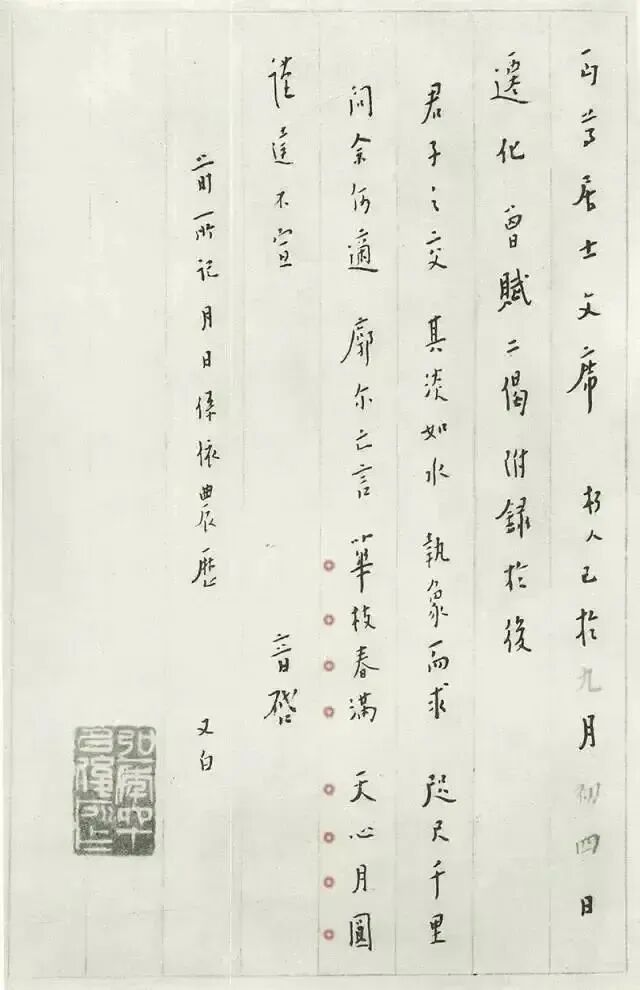 丏尊居士文席 朽人已於九月初四日
遷化曾賦二偈附錄於後
君子之交 其淡如水 執象而求 咫尺千里
問余何適 廓尔亡言 華枝春滿 天心月圓
謹達不宣 音啓
前所記月日係依農曆 又白